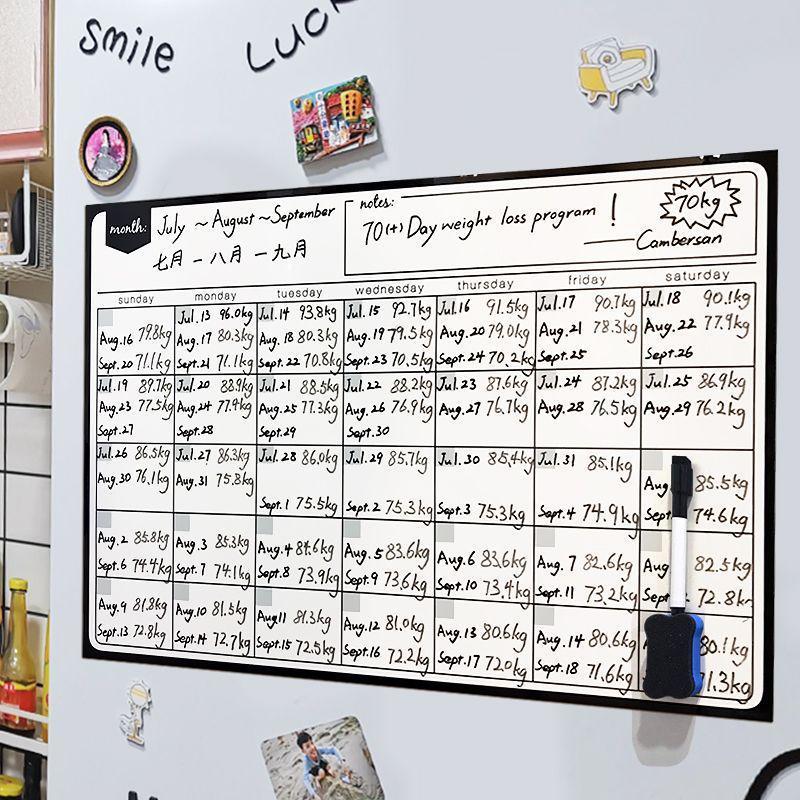 Smile
Luck
month:
July ~ August ~ September
七月 - 八月 - 九月
notes:
70(+) Day weight loss program !
—— Cambersan
70kg
sunday monday tuesday wednesday thursday friday saturday
Jul.13 96.0kg Jul.14 93.8kg Jul.15 92.7kg Jul.16 91.5kg Jul.17 90.7kg Jul.18 90.1kg
Aug.16 79.8kg Aug.17 80.3kg Aug.18 80.3kg Aug.19 79.5kg Aug.20 79.0kg Aug.21 78.3kg Aug.22 77.9kg
Sept.20 71.1kg Sept.21 71.1kg Sept.22 70.8kg Sept.23 70.5kg Sept.24 70.2kg Sept.25 Sept.26
Jul.19 89.7kg Jul.20 88.9kg Jul.21 88.5kg Jul.22 88.2kg Jul.23 87.6kg Jul.24 87.2kg Jul.25 86.9kg
Aug.23 77.5kg Aug.24 77.4kg Aug.25 77.3kg Aug.26 76.9kg Aug.27 76.7kg Aug.28 76.5kg Aug.29 76.2kg
Sept.27 Sept.28 Sept.29 Sept.30
Jul.26 86.5kg Jul.27 86.3kg Jul.28 86.0kg Jul.29 85.7kg Jul.30 85.4kg Jul.31 85.1kg Aug 85.5kg
Aug.30 76.1kg Aug.31 75.8kg Sept.1 75.5kg Sept.2 75.3kg Sept.3 75.3kg Sept.4 74.9kg Sept 74.6kg
Aug.2 85.8kg Aug.3 85.3kg Aug.4 84.6kg Aug.5 83.6kg Aug.6 83.6kg Aug.7 82.6kg Aug 82.5kg
Sept.6 74.4kg Sept.7 74.1kg Sept.8 73.9kg Sept.9 73.6kg Sept.10 73.4kg Sept.11 73.2kg Sept 72.8k
Aug.9 81.8kg Aug.10 81.5kg Aug.11 81.3kg Aug.12 81.0kg Aug.13 80.6kg Aug.14 80.6kg 80.1kg
Sept.13 72.8kg Sept.14 72.7kg Sept.15 72.5kg Sept.16 72.2kg Sept.17 72.0kg Sept.18 71.6kg 71.3kg